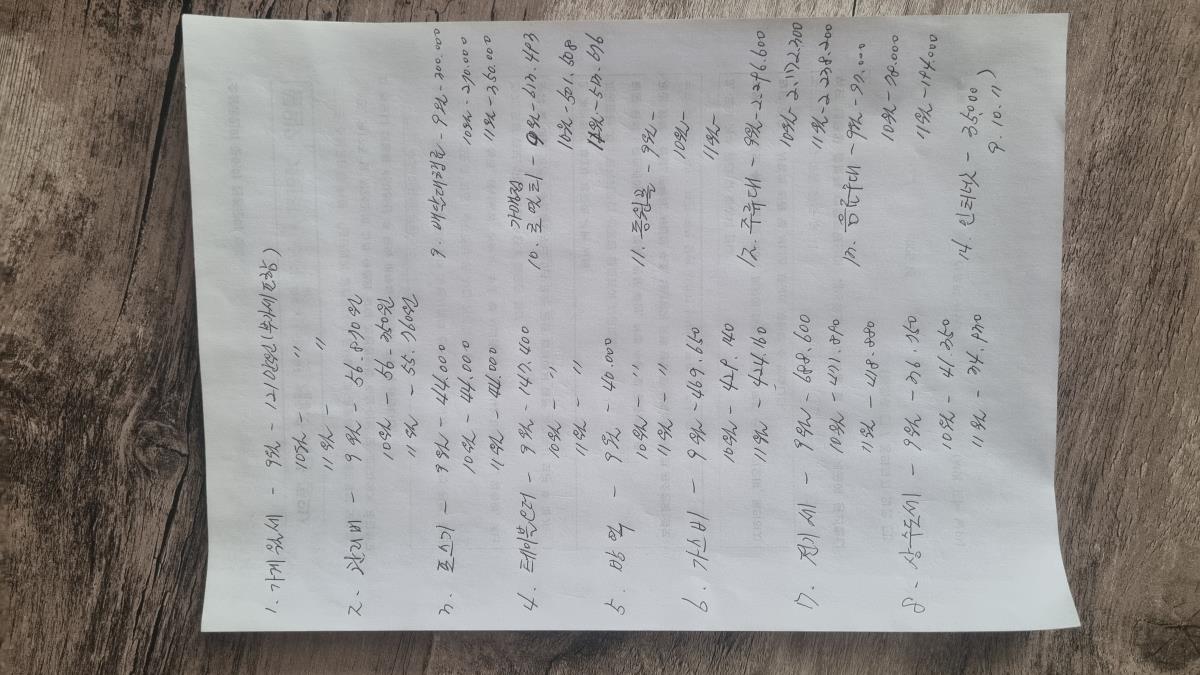 1. 가게월세 - 9월 - 121만원 (부가세포함)
10월 - 〃
11월 - 〃
2. 관리비 - 9월 - 56.870원
10월 - 56.350원
11월 - 55.760원
3. 포스기 - 9월 - 44.000
10월 - 44.000
11월 - 44.000
4. 테이블오더 - 9월 - 147.400
10월 - 〃
11월 - 〃
5. 방역 - 9월 - 40.000
10월 - 〃
11월 - 〃
6. 가스비 - 9월 - 469.650
10월 - 429.140
11월 - 424.160
7. 전기세 - 9월 - 688.600
10월 - 471.890
11월 - 418.880
8. 상수도세 - 9월 - 36.150
10월 - 41.350
11월 - 34.970
9. 배달대행료 - 9월 - 300.000
10월 - 270.000
11월 - 350.000
가맹점
10. 로열티 - 9월 - 617.493
10월 - 501.608
11월 - 517.676
11. 통원물 - 9월 -
10월 -
11월 -
12. 주류대 - 9월 - 2.296.600
10월 - 2.172.300
11월 - 2.238.200
13. 음료수대 - 9월 - 97.000
10월 - 78.000
11월 - 194.000
14. 인터넷 - 35000
9. 10. 11)